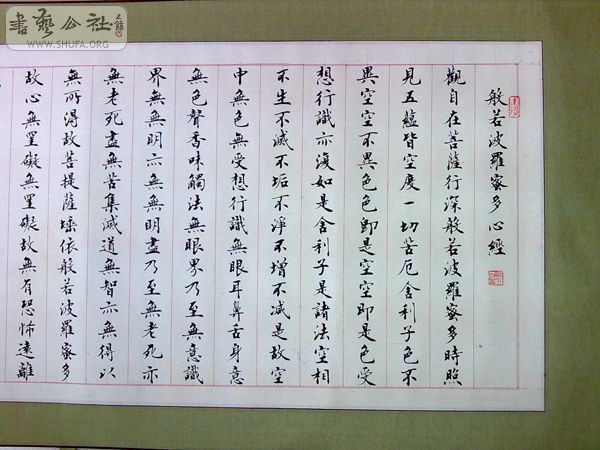 書藝公社
WWW.SHUFA.ORG
般若波羅蜜多心經
觀自在菩薩行深般若波羅蜜多時照
見五蘊皆空度一切苦厄舍利子色不
異空空不異色色即是空空即是色受
想行識亦復如是舍利子是諸法空相
不生不滅不垢不淨不增不減是故空
中無色無受想行識無眼耳鼻舌身意
無色聲香味觸法無眼界乃至無意識
界無無明亦無無明盡乃至無老死亦
無老死盡無苦集滅道無智亦無得以
無所得故菩提薩埵依般若波羅蜜多
故心無罣礙無罣礙故無有恐怖遠離